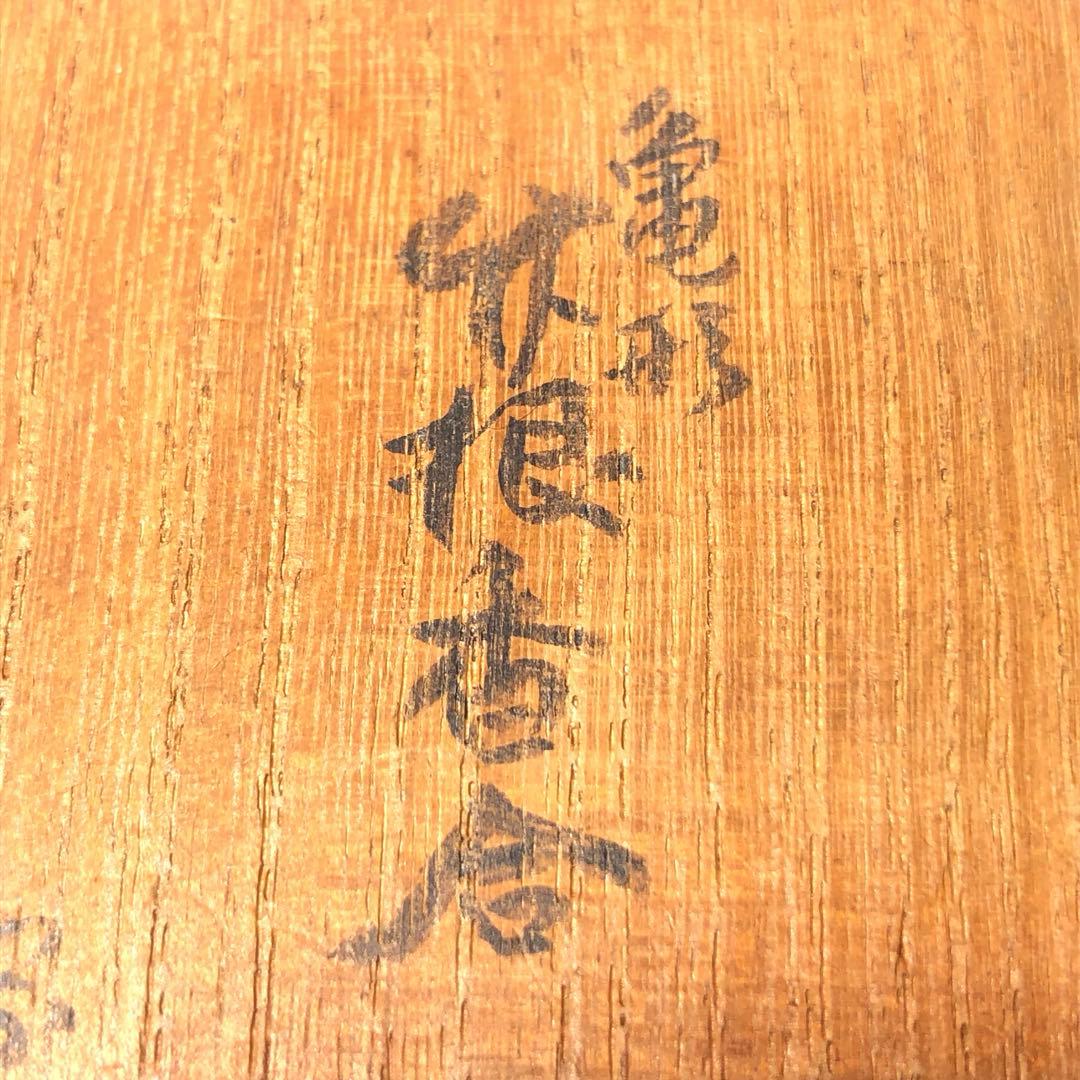 亀形
竹根香合